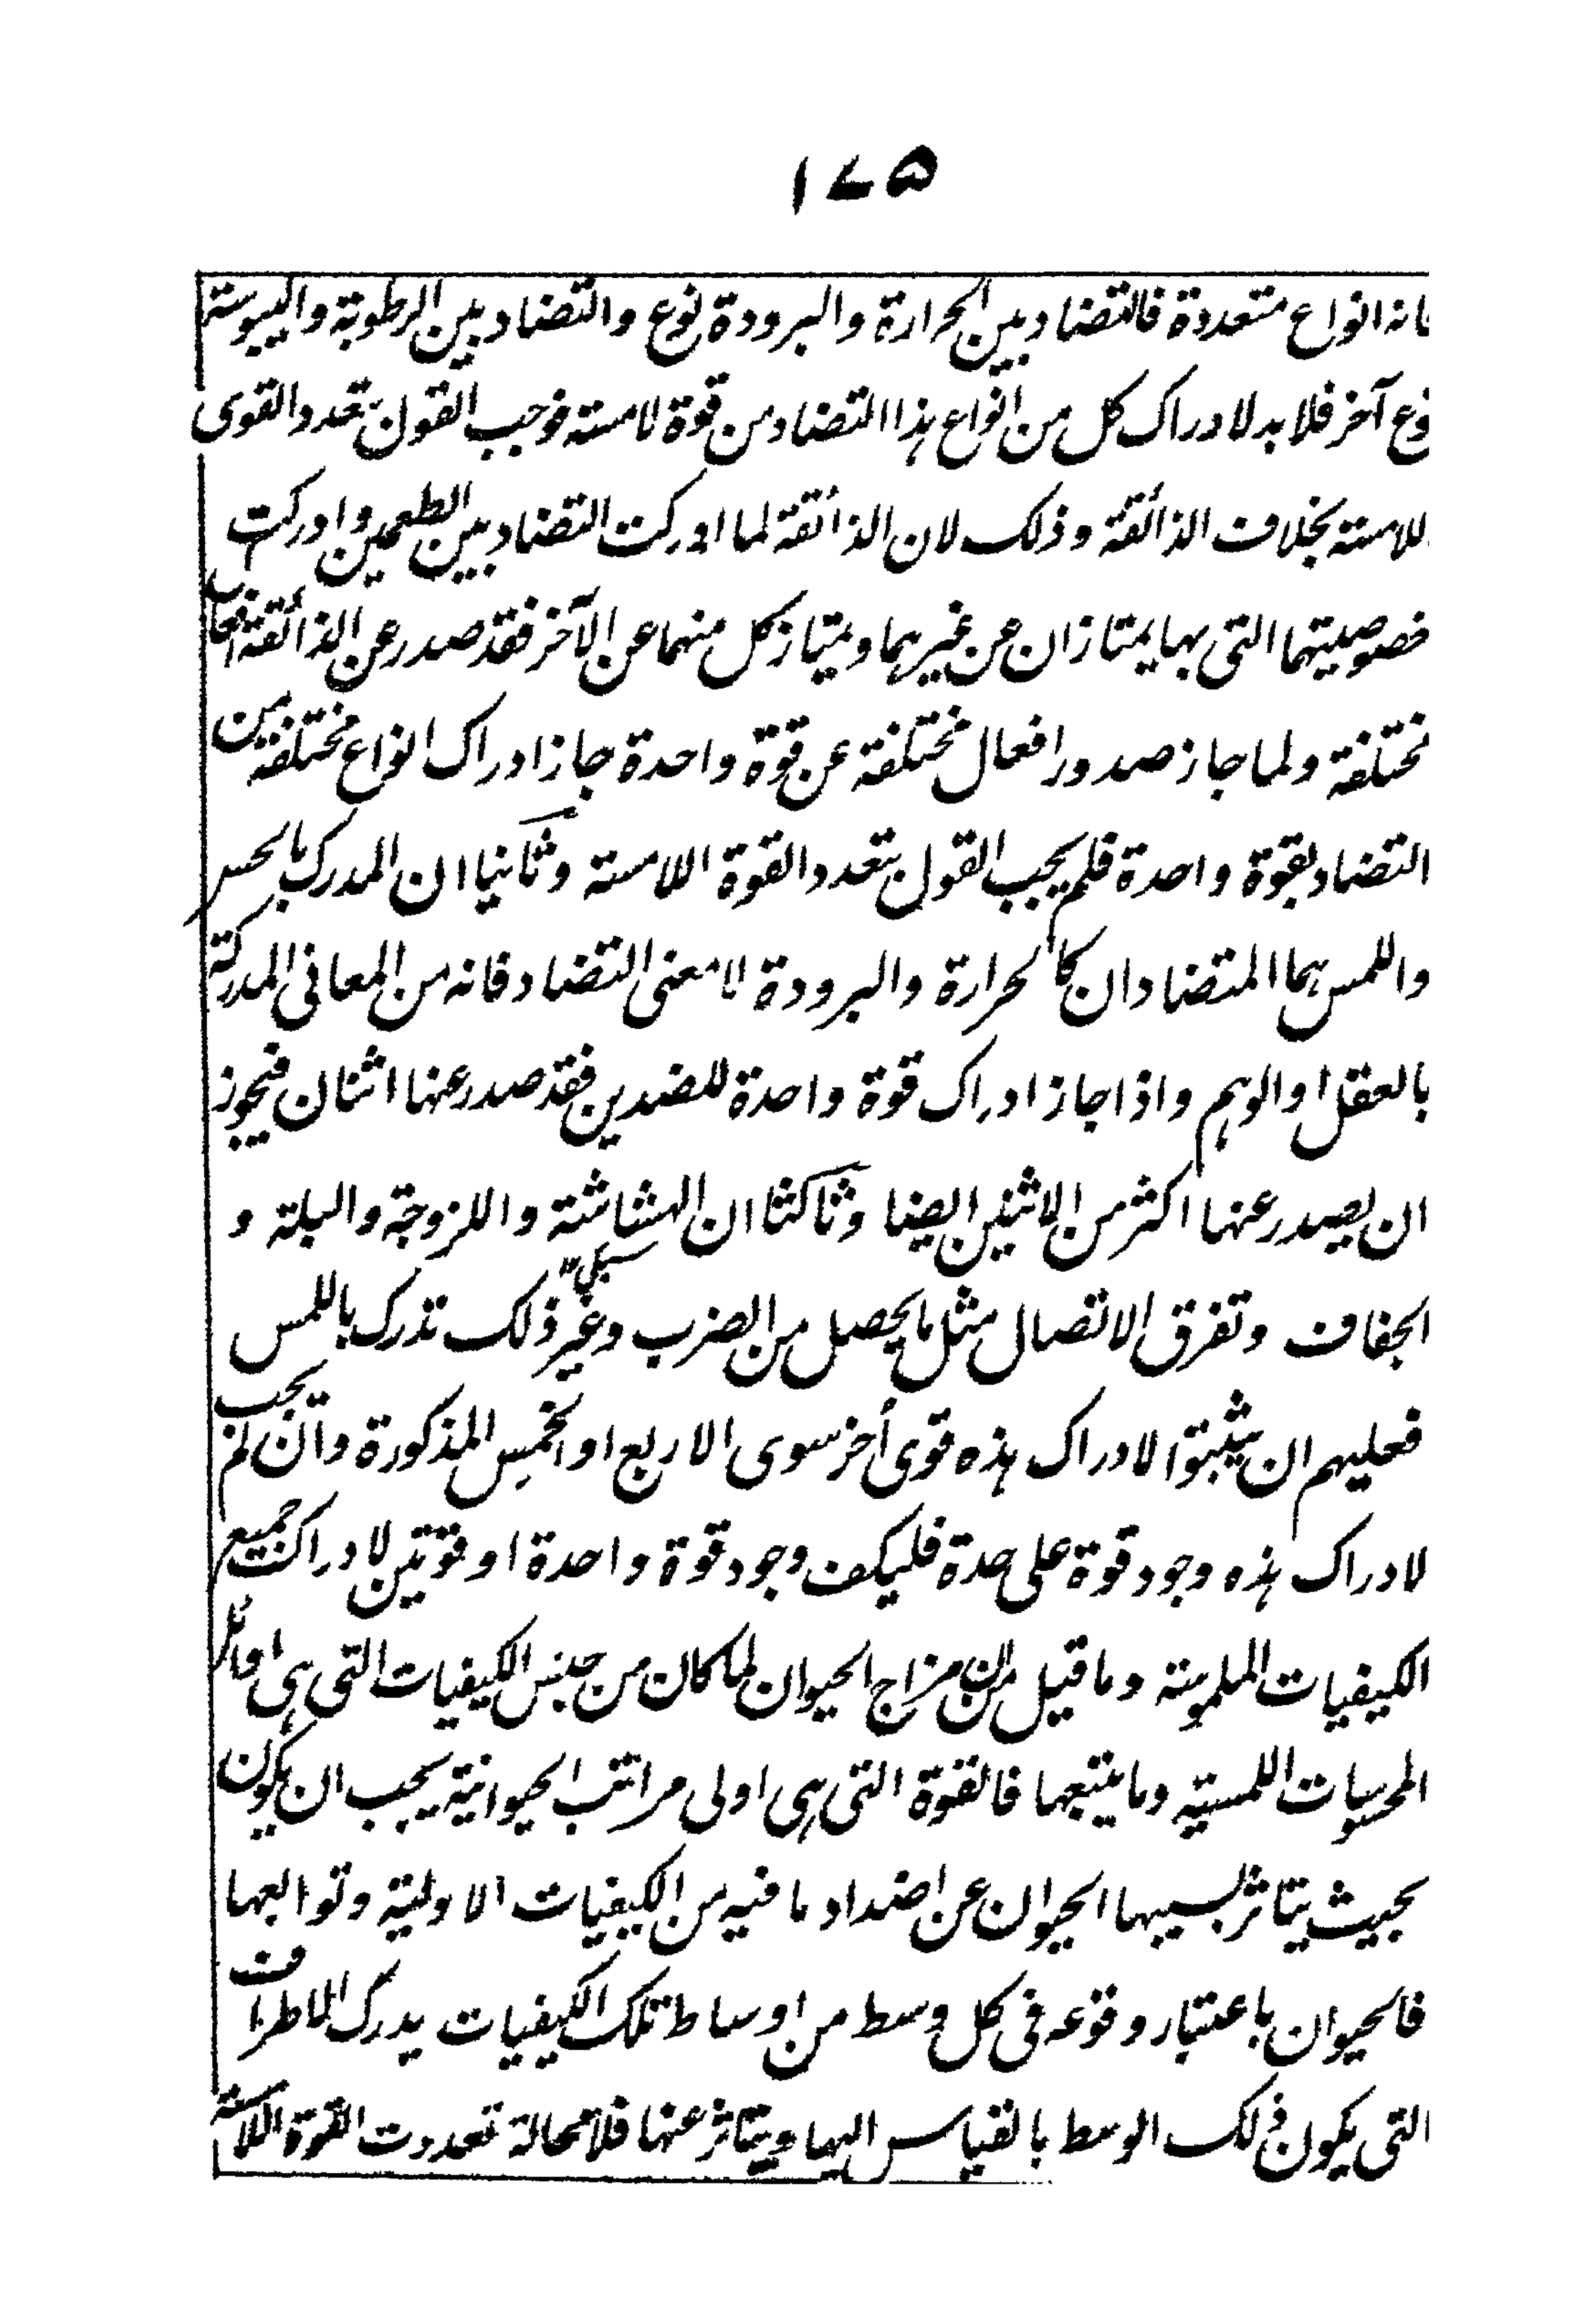 ۱۷۵
فانه انواع متعددة فالتضاد بين الحرارة والبرودة نوع والتضاد بين الرطوبة واليبوسة
نوع آخر فلا بد لادراك كل من انواع هذا التضاد من قوة لامسة فوجب القول بتعدد القوى
اللامسة بخلاف الذائقة وذلك لان الذائقة لما ادركت التضاد بين الطعمين وادركت
خصوصيتهما التى بها يمتازان عن غيرهما ويمتاز كل منهما عن الآخر فقد صدر عن الذائقة افعال
مختلفة ولما جاز صدور افعال مختلفة عن قوة واحدة جاز ادراك انواع مختلفة من
التضاد بقوة واحدة فلم يجب القول بتعدد القوة اللامسة وثانيا ان المدرك بالحس
واللمس هما المتضادان كالحرارة والبرودة لا معنى التضاد فانه من المعانى المدركة
بالعقل او الوهم واذا جاز ادراك قوة واحدة للضدين فقد صدر عنها اثنان فيجوز
ان يصدر عنها اكثر من الاثنين ايضا وثالثا ان الهشاشة واللزوجة والبلة و
الجفاف وتفرق الاتصال مثل ما يحصل من الضرب وغير ذلك تدرك باللمس
فعليهم ان يثبتوا لادراك هذه قوى أخر سوى الاربع او الخمس المذكورة وان لم يجب
لادراك هذه وجود قوة على حدة فليكف وجود قوة واحدة او قوتين لادراك جميع
الكيفيات الملموسة وما قيل من ان مزاج الحيوان لما كان من جنس الكيفيات التى هى اوائل
المحسوسات اللمسية وما يتبعها فالقوة التى هى اولى مراتب الحيوانية يجب ان يكون
بحيث يتاثر بسببها الحيوان عن اضداد ما فيه من الكيفيات الاولية وتوابعها
فالحيوان باعتبار وقوعه فى كل وسط من اوساط تلك الكيفيات يدرك الاطراف
التى يكون ذلك الوسط بالقياس اليها ويتاثر عنها فلا محالة تعددت القوة اللامسة